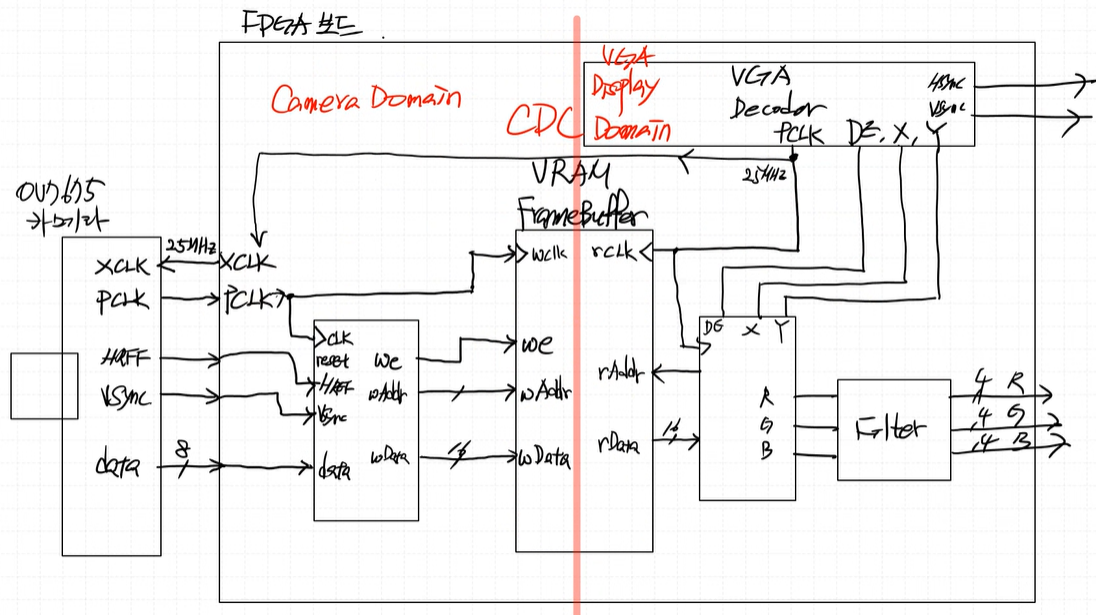 FPGA 보드
Camera Domain
CDC
VGA
Display
Domain
VGA
Decoder
PCLK
DE, X, Y
HSync
VSync
25MHz
VRAM
FrameBuffer
OV7675
카메라
XCLK
PCLK
HREF
VSync
data
25MHz
8
XCLK
PCLK
CLK
reset
HREF
VSync
data
we
wAddr
wData
16
wclk
we
wAddr
wData
rCLK
rAddr
rData
16
DE X Y
R
G
B
Filter
4 R
4 G
4 B